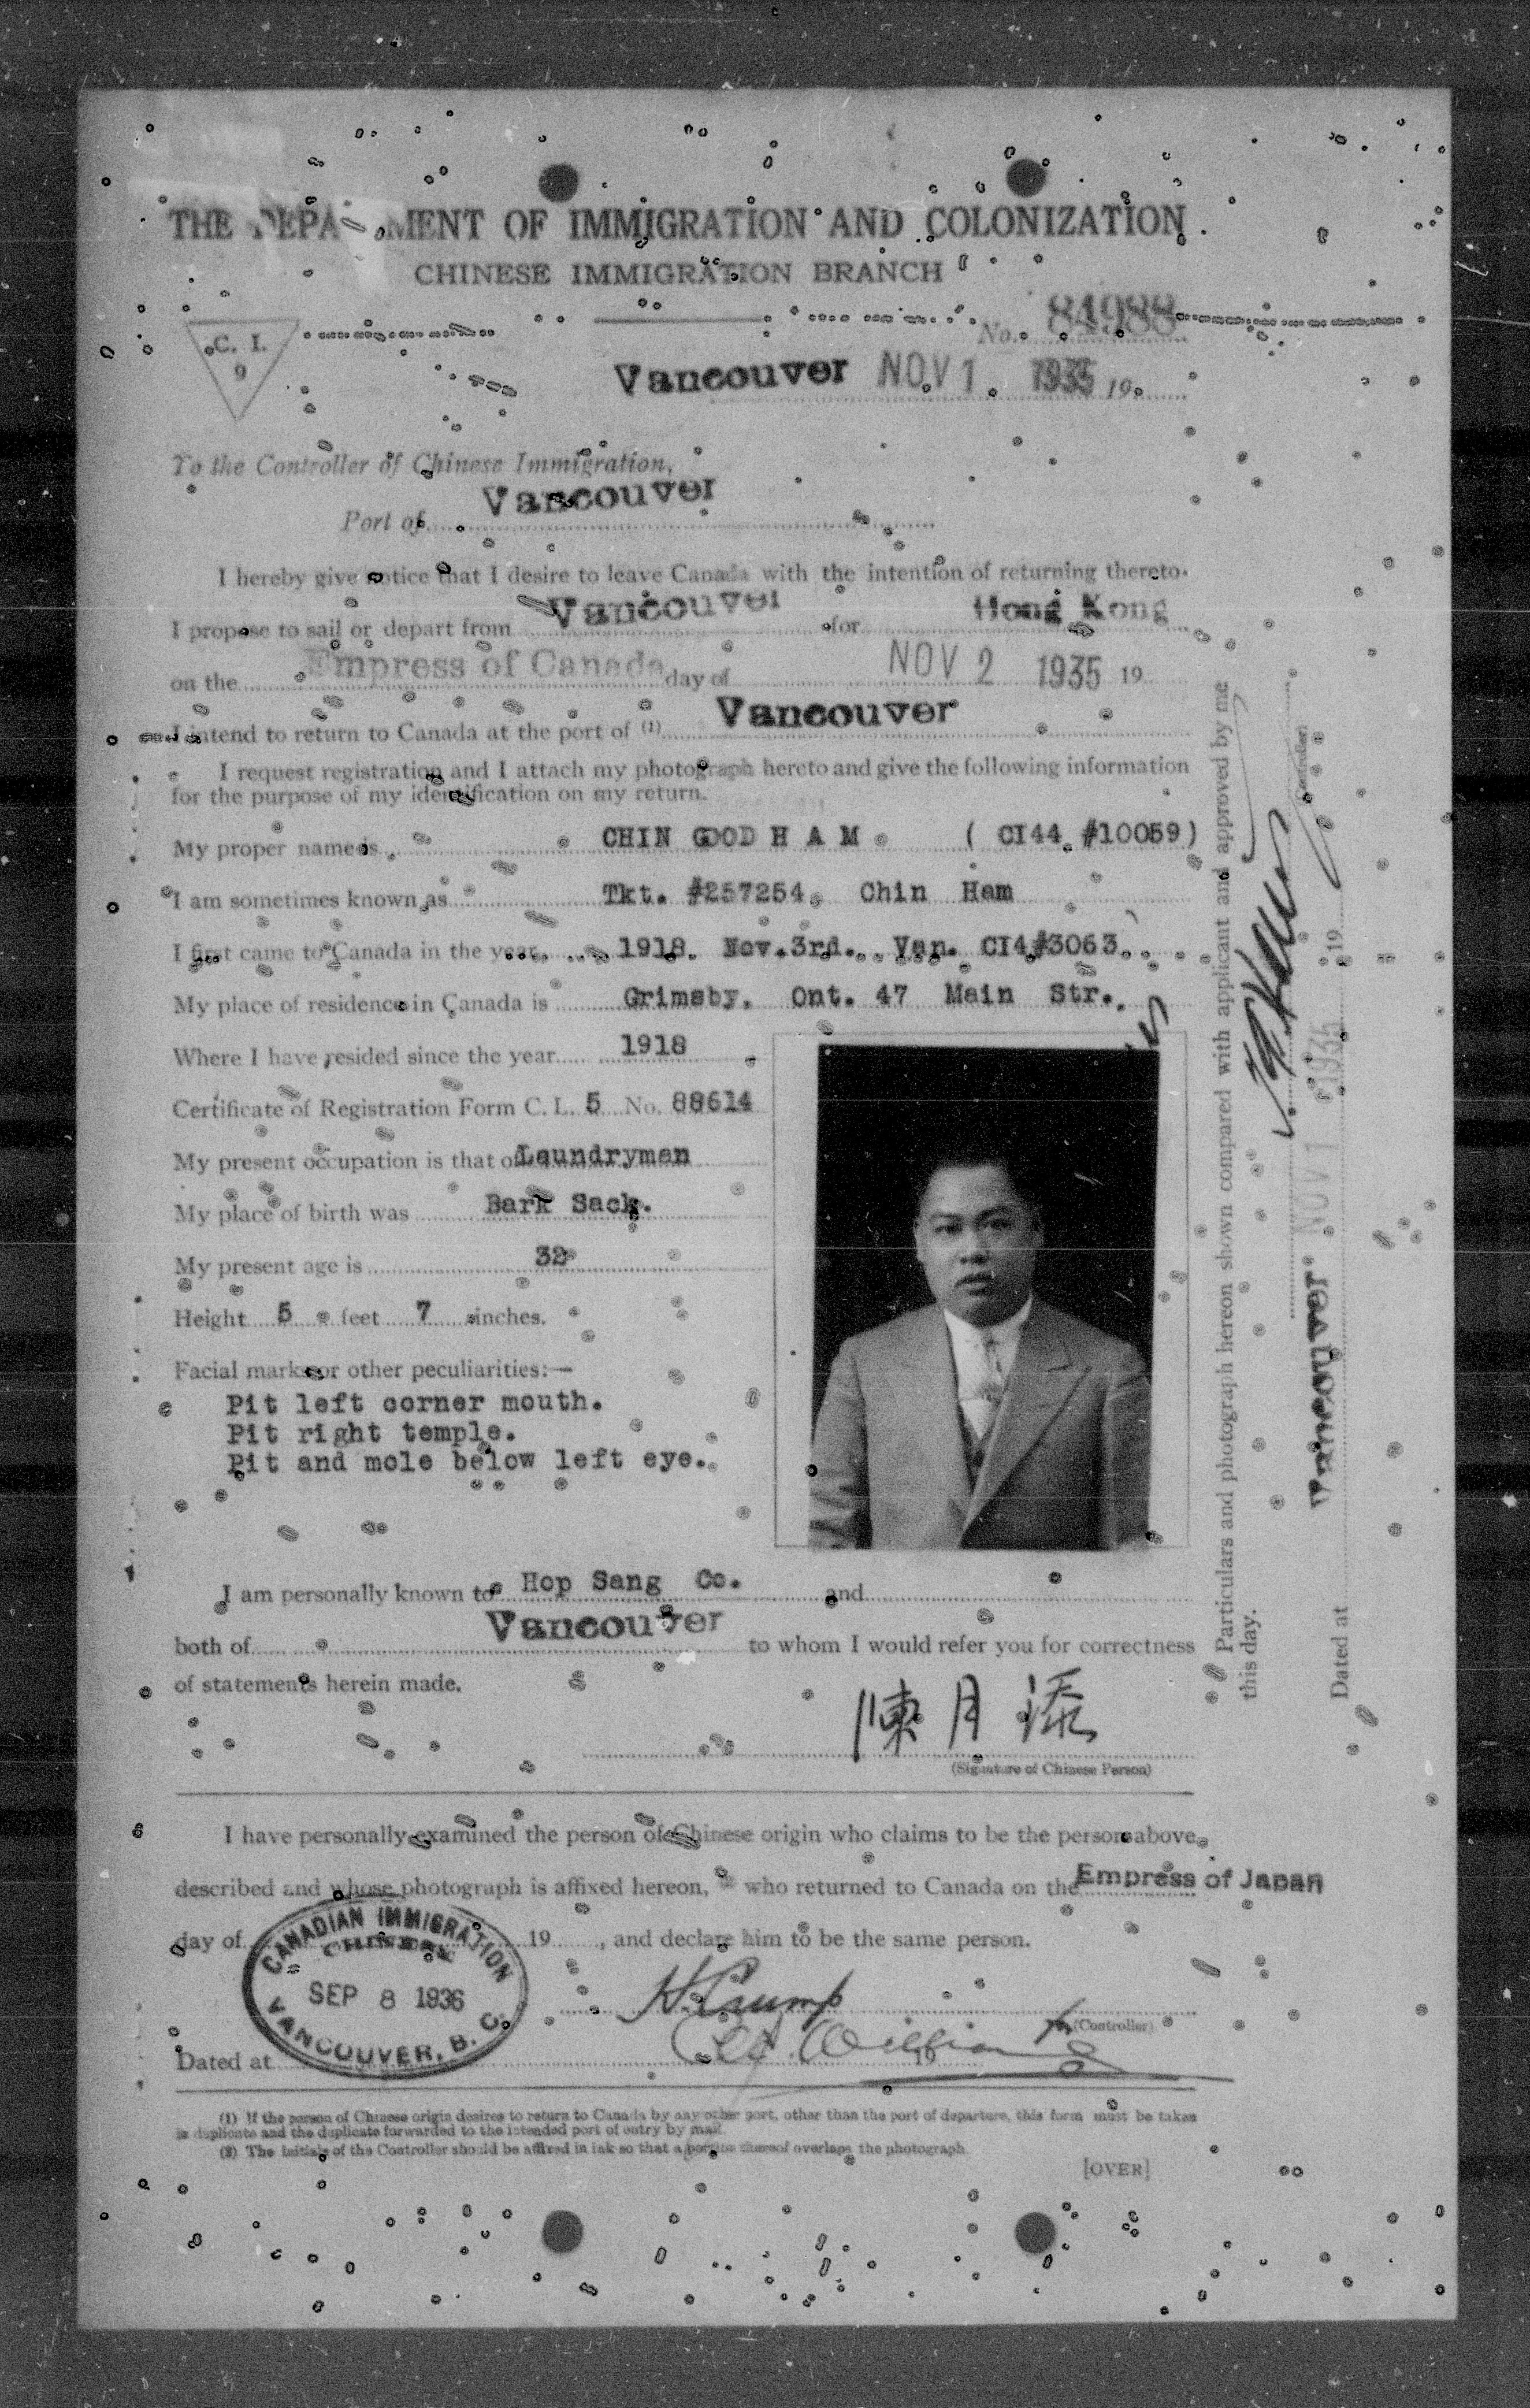 THE DEPARTMENT OF IMMIGRATION AND COLONIZATION
CHINESE IMMIGRATION BRANCH
C. I.
9
No. 84988
Vancouver NOV 1 1935 19
To the Controller of Chinese Immigration,
Port of Vancouver
I hereby give notice that I desire to leave Canada with the intention of returning thereto.
I propose to sail or depart from Vancouver for Hong Kong
on the Empress of Canada day of NOV 2 1935 19
I intend to return to Canada at the port of (1) Vancouver
I request registration and I attach my photograph hereto and give the following information
for the purpose of my identification on my return.
My proper name is CHIN GOOD H A M ( CI44 #10059)
I am sometimes known as Tkt. #257254. Chin Ham
I first came to Canada in the year 1918. Nov.3rd. Van. CI4#3063.
My place of residence in Canada is Grimsby, Ont. 47 Main Str.
Where I have resided since the year 1918
Certificate of Registration Form C. I. 5 No. 88614
My present occupation is that of Laundryman
My place of birth was Bark Sack.
My present age is 32
Height 5 feet 7 inches.
Facial marks or other peculiarities:—
Pit left corner mouth.
Pit right temple.
Pit and mole below left eye.
I am personally known to Hop Sang Co. and
both of Vancouver to whom I would refer you for correctness
of statements herein made.
陳月添
(Signature of Chinese Person)
I have personally examined the person of Chinese origin who claims to be the person above
described and whose photograph is affixed hereon, who returned to Canada on the Empress of Japan
day of 19 , and declare him to be the same person.
CANADIAN IMMIGRATION
CHINESE
SEP 8 1936
VANCOUVER, B. C.
H. Crump
(Controller)
Dated at 19
(1) If the person of Chinese origin desires to return to Canada by any other port, other than the port of departure, this form must be taken
in duplicate and the duplicate forwarded to the intended port of entry by mail.
(2) The initials of the Controller should be affixed in ink so that a portion thereof overlaps the photograph
[OVER]
Particulars and photograph hereon shown compared with applicant and approved by me
this day.
(Controller)
Dated at Vancouver NOV 1 1935 19